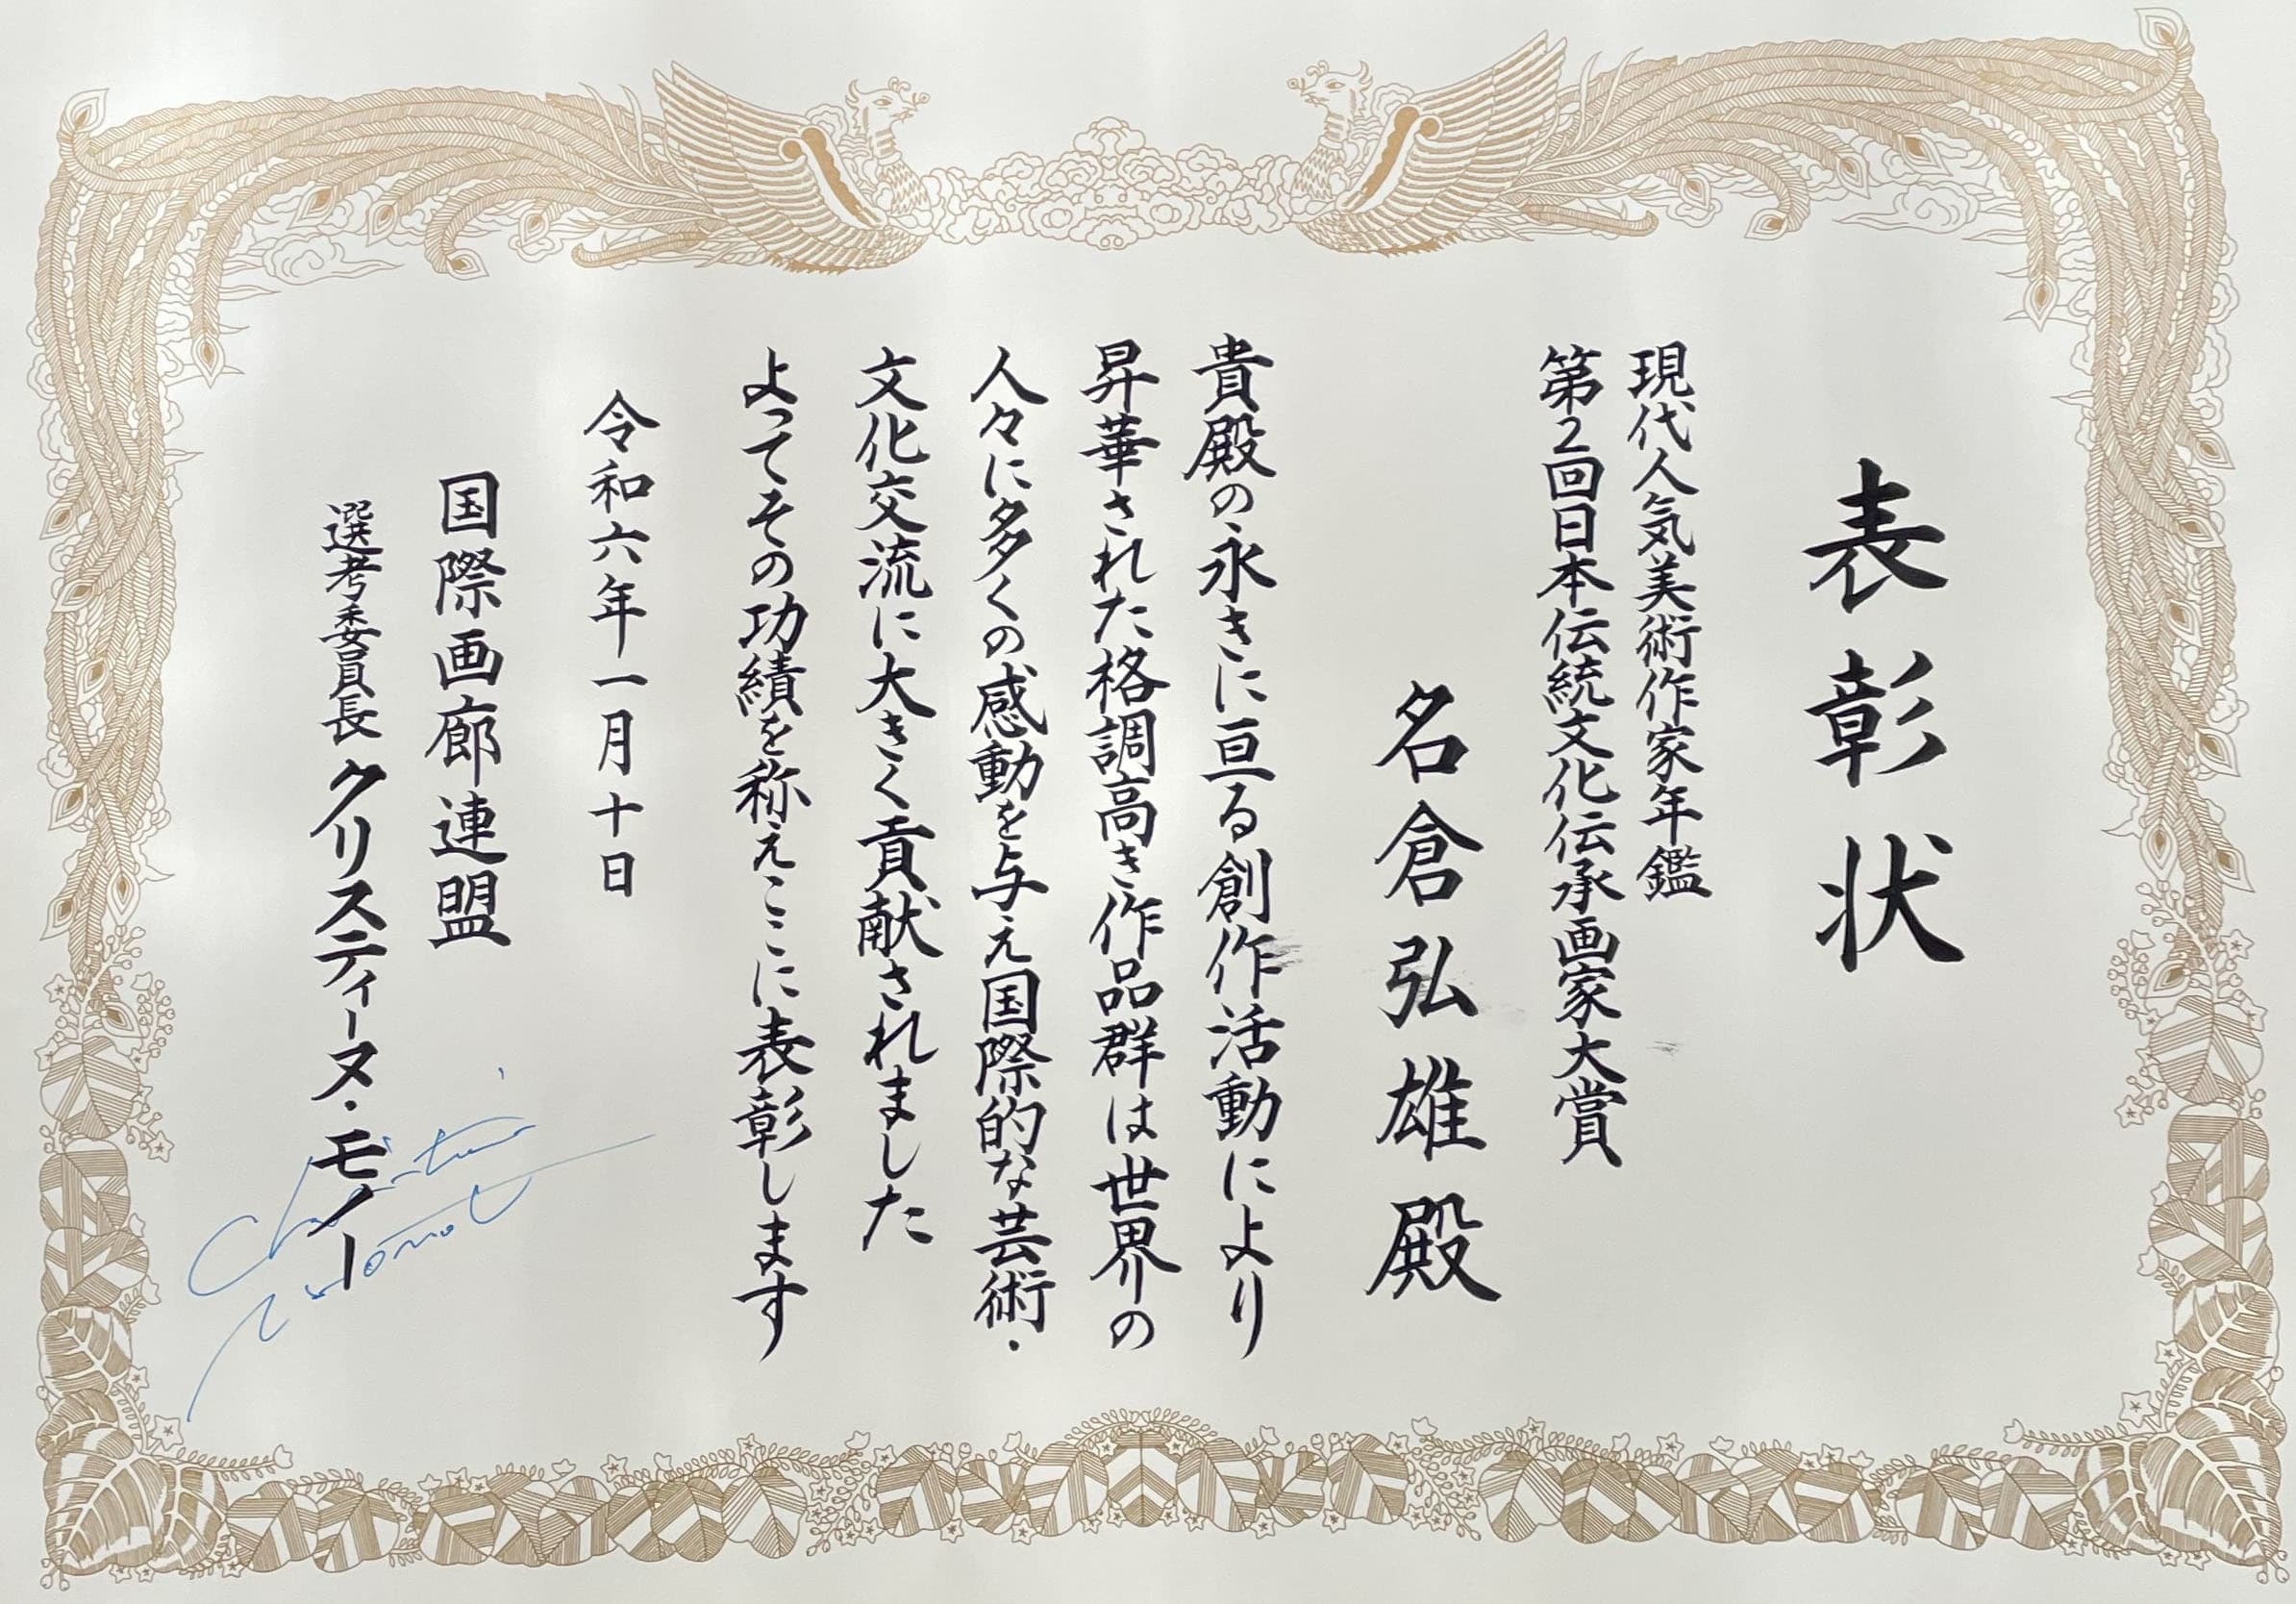 表彰状
現代人気美術作家年鑑
第2回日本伝統文化伝承画家大賞
名倉弘雄殿
貴殿の永きに亘る創作活動により
昇華された格調高き作品群は世界の
人々に多くの感動を与え国際的な芸術・
文化交流に大きく貢献されました
よってその功績を称えここに表彰します
令和六年一月十日
国際画廊連盟
選考委員長 クリスティーヌ・モノー